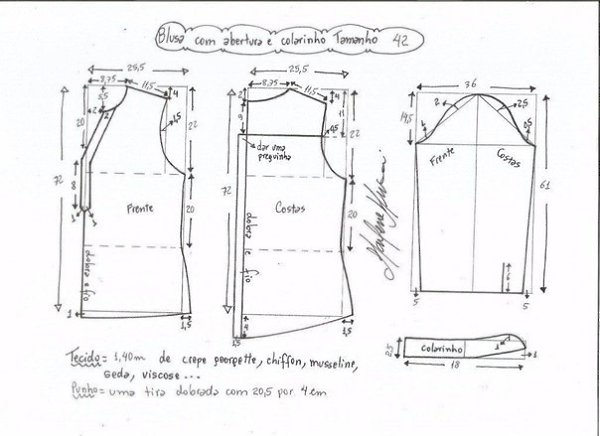 Blusa com abertura e colarinho Tamanho 42
25,5
8,75
11,5
4
5,5
2
2
20
1,5
22
8
72
Frente
20
1
1
dobra e fio
1
1,5
25,5
8,75
11,5
2
4
9
11
0,5
22
dar uma preguinha
72
Costas
20
dobra e fio
4
1,5
36
14,5
2
2,5
1
0,5
Frente
Costas
61
5
5
2,5
colarinho
1
1
18
Tecido = 1,40m de crepe georgette, chiffon, musseline,
seda, viscose ...
Punho = uma tira dobrada com 20,5 por 4cm